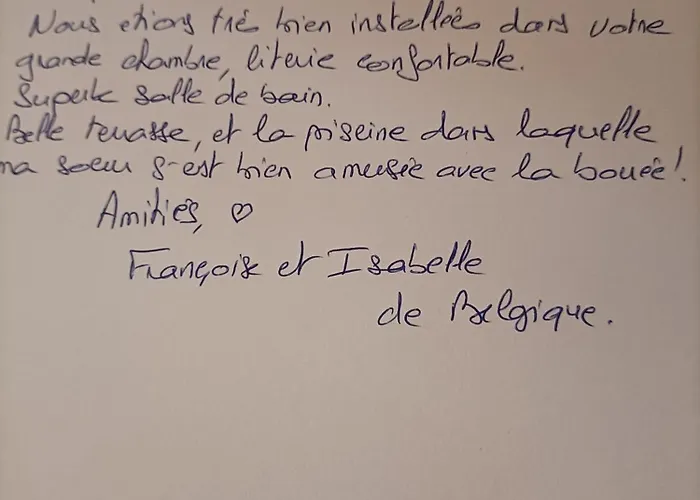 Nous etions trés bien installeés dans votre
grande chambre, literie confortable.
Superbe salle de bain.
Belle terrasse, et la piseine dans laquelle
ma soeur s'est bien amusée avec la bouée!
Amitiés, ♡
Françoise et Isabelle
de Belgique.